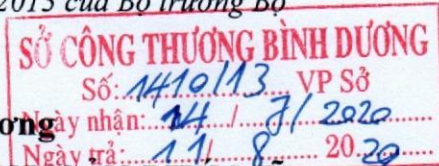 2015 của Bộ trưởng Bộ
SỞ CÔNG THƯƠNG BÌNH DƯƠNG
Số: 1410/13 VP Sở
ơng
Ngày nhận: 14/7/2020
Ngày trả: 11/8 2020